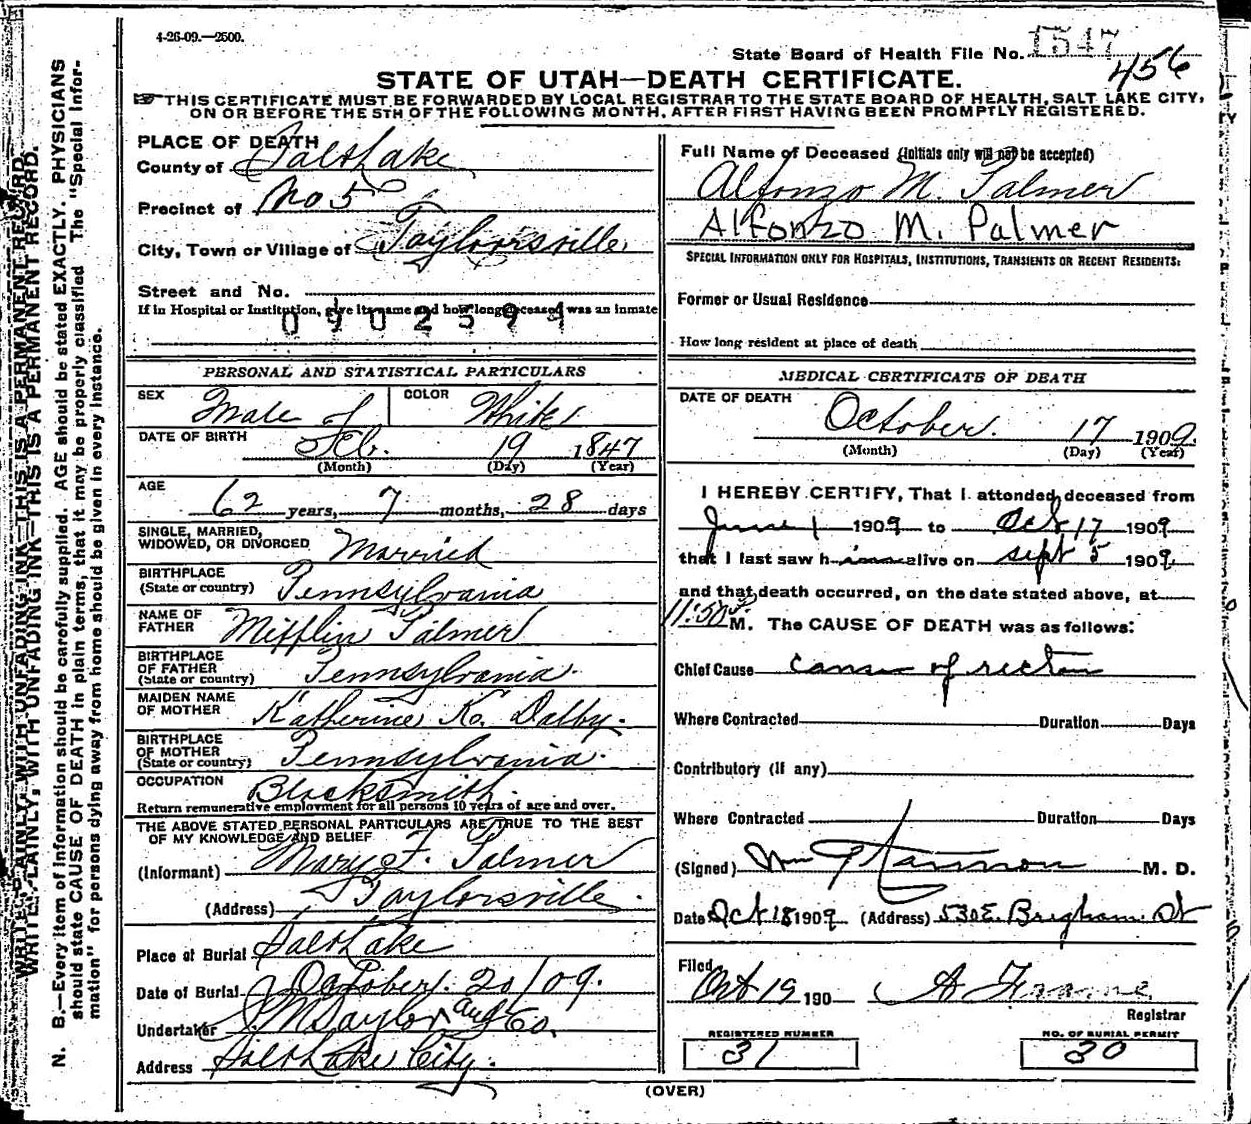 4-26-09.—2500.
State Board of Health File No. 1547
456
STATE OF UTAH—DEATH CERTIFICATE.
THIS CERTIFICATE MUST BE FORWARDED BY LOCAL REGISTRAR TO THE STATE BOARD OF HEALTH, SALT LAKE CITY,
ON OR BEFORE THE 5TH OF THE FOLLOWING MONTH, AFTER FIRST HAVING BEEN PROMPTLY REGISTERED.
WRITE PLAINLY, WITH UNFADING INK—THIS IS A PERMANENT RECORD.
WRITE PLAINLY, WITH UNFADING INK—THIS IS A PERMANENT RECORD.
N. B.—Every item of information should be carefully supplied. AGE should be stated EXACTLY. PHYSICIANS
should state CAUSE OF DEATH in plain terms, that it may be properly classified. The "Special Infor-
mation" for persons dying away from home should be given in every instance.
PLACE OF DEATH
County of Salt Lake
Precinct of No 5
City, Town or Village of Taylorsville
Street and No.
If in Hospital or Institution, give its name and how long deceased was an inmate
0902599
PERSONAL AND STATISTICAL PARTICULARS
SEX Male COLOR White
DATE OF BIRTH Feb. 19 1847
(Month) (Day) (Year)
AGE
62 years, 7 months, 28 days
SINGLE, MARRIED,
WIDOWED, OR DIVORCED Married
BIRTHPLACE
(State or country) Pennsylvania
NAME OF
FATHER Mifflin Palmer
BIRTHPLACE
OF FATHER
(State or country) Pennsylvania.
MAIDEN NAME
OF MOTHER Katherine K. Dalby.
BIRTHPLACE
OF MOTHER
(State or country) Pennsylvania.
OCCUPATION Blacksmith.
Return remunerative employment for all persons 10 years of age and over.
THE ABOVE STATED PERSONAL PARTICULARS ARE TRUE TO THE BEST
OF MY KNOWLEDGE AND BELIEF
(Informant) Mary F. Palmer
(Address) Taylorsville.
Place of Burial Salt Lake
Date of Burial October. 20/09.
Undertaker S. M. Taylor and Co.
Address Salt Lake City.
Full Name of Deceased (Initials only will not be accepted)
Alfonzo M. Palmer
Alfonzo M. Palmer
SPECIAL INFORMATION ONLY FOR HOSPITALS, INSTITUTIONS, TRANSIENTS OR RECENT RESIDENTS:
Former or Usual Residence
How long resident at place of death
MEDICAL CERTIFICATE OF DEATH
DATE OF DEATH
October. 17 1909.
(Month) (Day) (Year)
I HEREBY CERTIFY, That I attended deceased from
June 1 1909 to Oct 17 1909
that I last saw h im alive on Sept 5 1909
and that death occurred, on the date stated above, at
11:50 P. M. The CAUSE OF DEATH was as follows:
Chief Cause cancer of rectum
Where Contracted Duration Days
Contributory (if any)
Where Contracted Duration Days
(Signed) Wm M. D.
Date Oct 18 1909 (Address) 530 E. Brigham St
Filed
Oct 19 190 Registrar
REGISTERED NUMBER
31
NO. OF BURIAL PERMIT
30
(OVER)